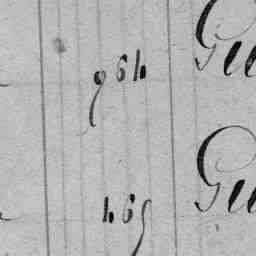 964 Gu
465 Gu